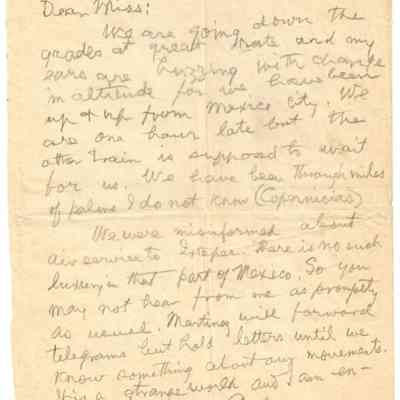 Dear Miss:
We are going down the
grades at great rate and my
ears are buzzing with change
in altitude for we have been
up & up from Mexico City. We
are one hour late but the
other train is supposed to wait
for us. We have been through miles
of palms I do not know (Copernicias)
We were misinformed about
air service to Ixtepec. There is no such
luxury in that part of Mexico. So you
may not hear from me as promptly
as usual. Martinez will forward
telegrams but hold letters until we
know something about any movements.
It is a strange world and I am en-